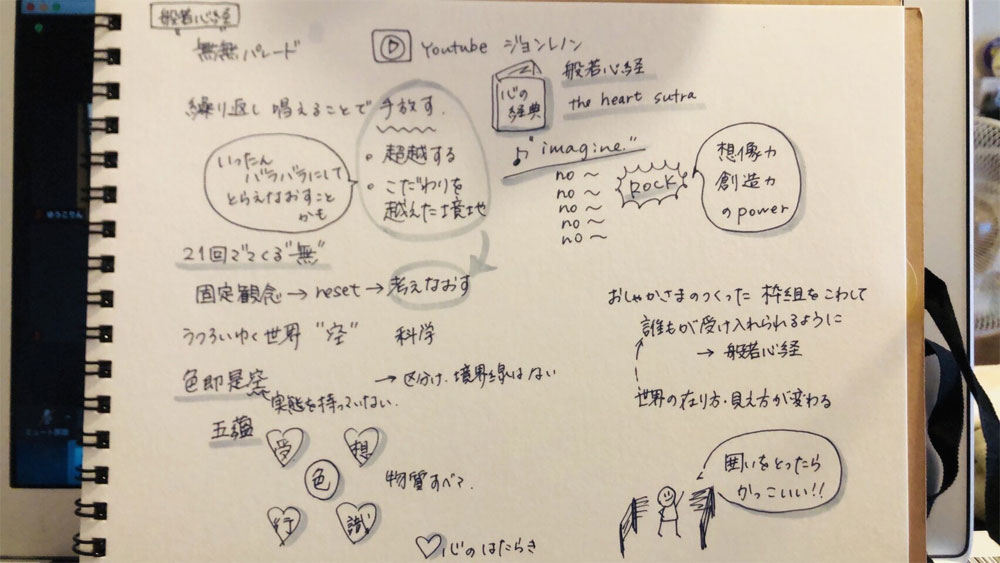 般若心経
"無無"パレード
Youtube ジョンレノン
心の
経典
般若心経
the heart sutra
繰り返し 唱えることで 手放す.
• 超越する
• こだわりを
越えた境地
いったん
バラバラにして
とらえなおすこと
かも
♪"imagine."
no ~
no ~
no ~
no ~
no ~
ROCK
想像力
創造力
のpower
21回でてくる"無"
固定観念→reset→考えなおす
うつろいゆく世界 "空" 科学
色即是空
実態を持っていない.
→区分け.境界線はない
五蘊
受
想
色
行
識
物質すべて.
♡心のはたらき
おしゃかさまのつくった 枠組をこわして
誰もが受け入れられるように
→ 般若心経
世界の在り方・見え方が変わる
囲いをとったら
かっこいい!!
ゆうこりん
ミュート解除